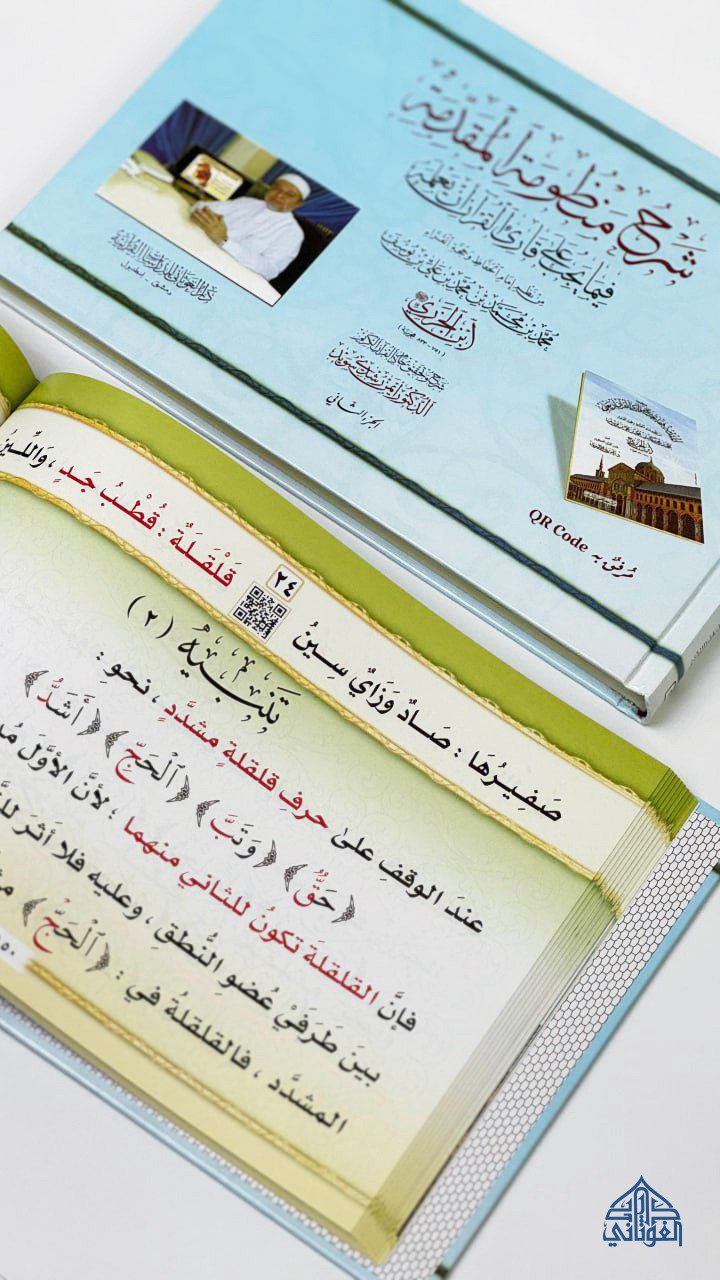 شرح منظومة المقدمة
فيما يجب على قارئ القرآن أن يعلمه
من نظم إمام الحفاظ وحجة القراء
محمد بن محمد بن محمد بن علي بن يوسف
ابن الجزري
(٧٥١ - ٨٣٣ هجرية)
الدكتور أيمن رشدي سويد
الجزء الثاني
دار الغوثاني للدراسات القرآنية
دمشق - إسطنبول
مُرفقٌ به QR Code
صَفِيرُهَا : صَادٌ وَزَايٌ سِينُ
٢٤
قَلْقَلَةٌ : قُطْبُ جَدٍ ، وَاللِّينُ
تَنْبِيهٌ (٢)
عندَ الوقفِ علىٰ حرفِ قلقلةٍ مشدَّدٍ ، نحوِ :
﴿حَقٌّ﴾ ﴿وَتَبَّ﴾ ﴿ٱلْحَجِّ﴾ ﴿أَشَدُّ﴾
فإنَّ القلقلةَ تكونُ للثاني منهما ؛ لأنَّ الأوَّلَ
بينَ طَرَفَيْ عُضوِ النُّطقِ ، وعليه فلا أثرَ
المشدَّد ، فالقلقلةُ في : ﴿ٱلْحَجِّ﴾
الغوثاني